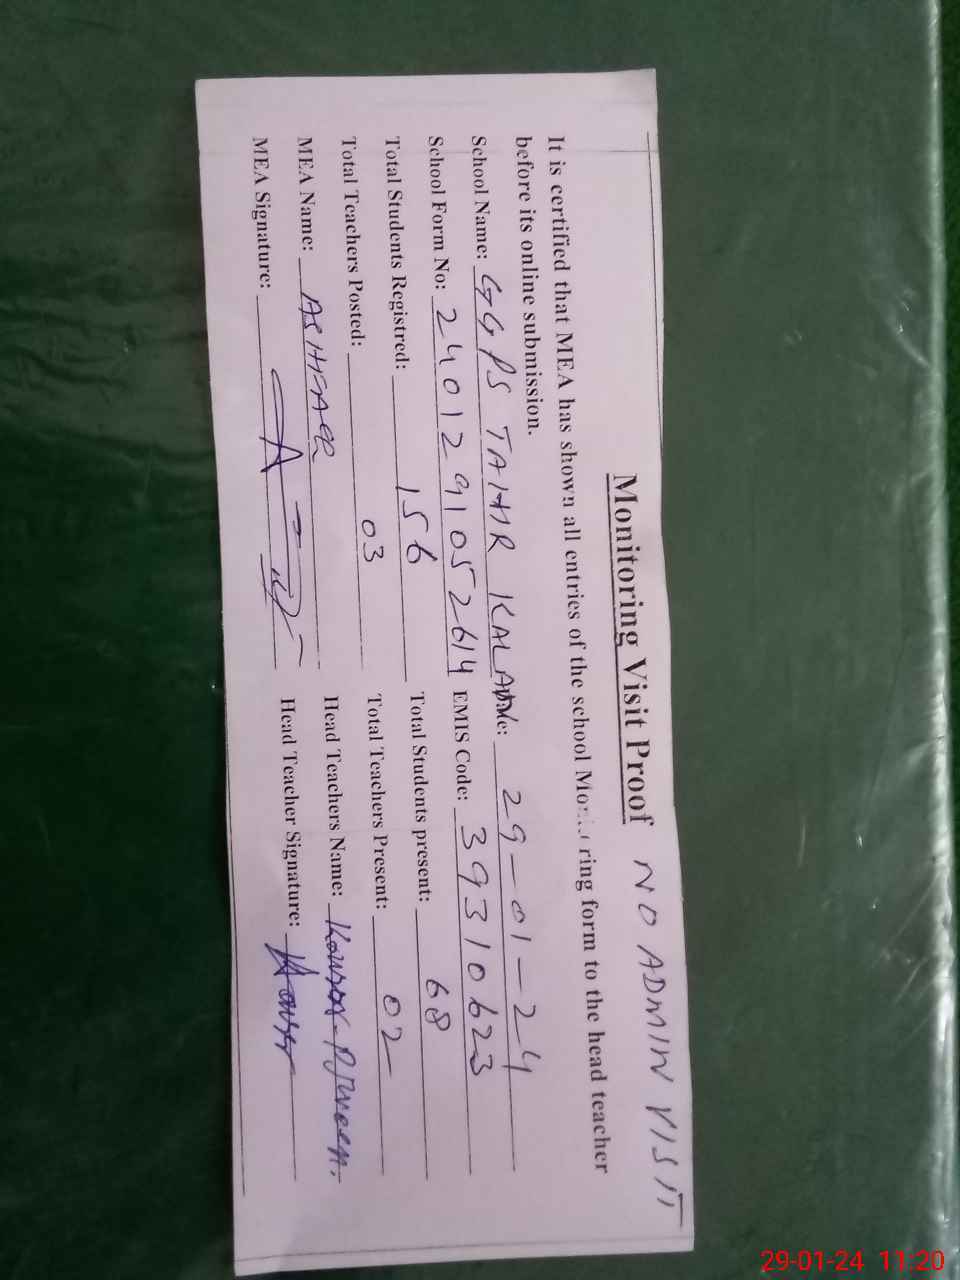 Monitoring Visit Proof NO ADMIN VISIT
It is certified that MEA has shown all entries of the school Monitoring form to the head teacher
before its online submission.
School Name: GGPS TAHIR KALAN Date: 29-01-24
School Form No: 2401291052614 EMIS Code: 39310623
Total Students Registred: 156 Total Students present: 68
Total Teachers Posted: 03 Total Teachers Present: 02
MEA Name: ASHFAQ Head Teachers Name: Kousar Parveen.
MEA Signature: Head Teacher Signature: Kousar
29-01-24 11:20